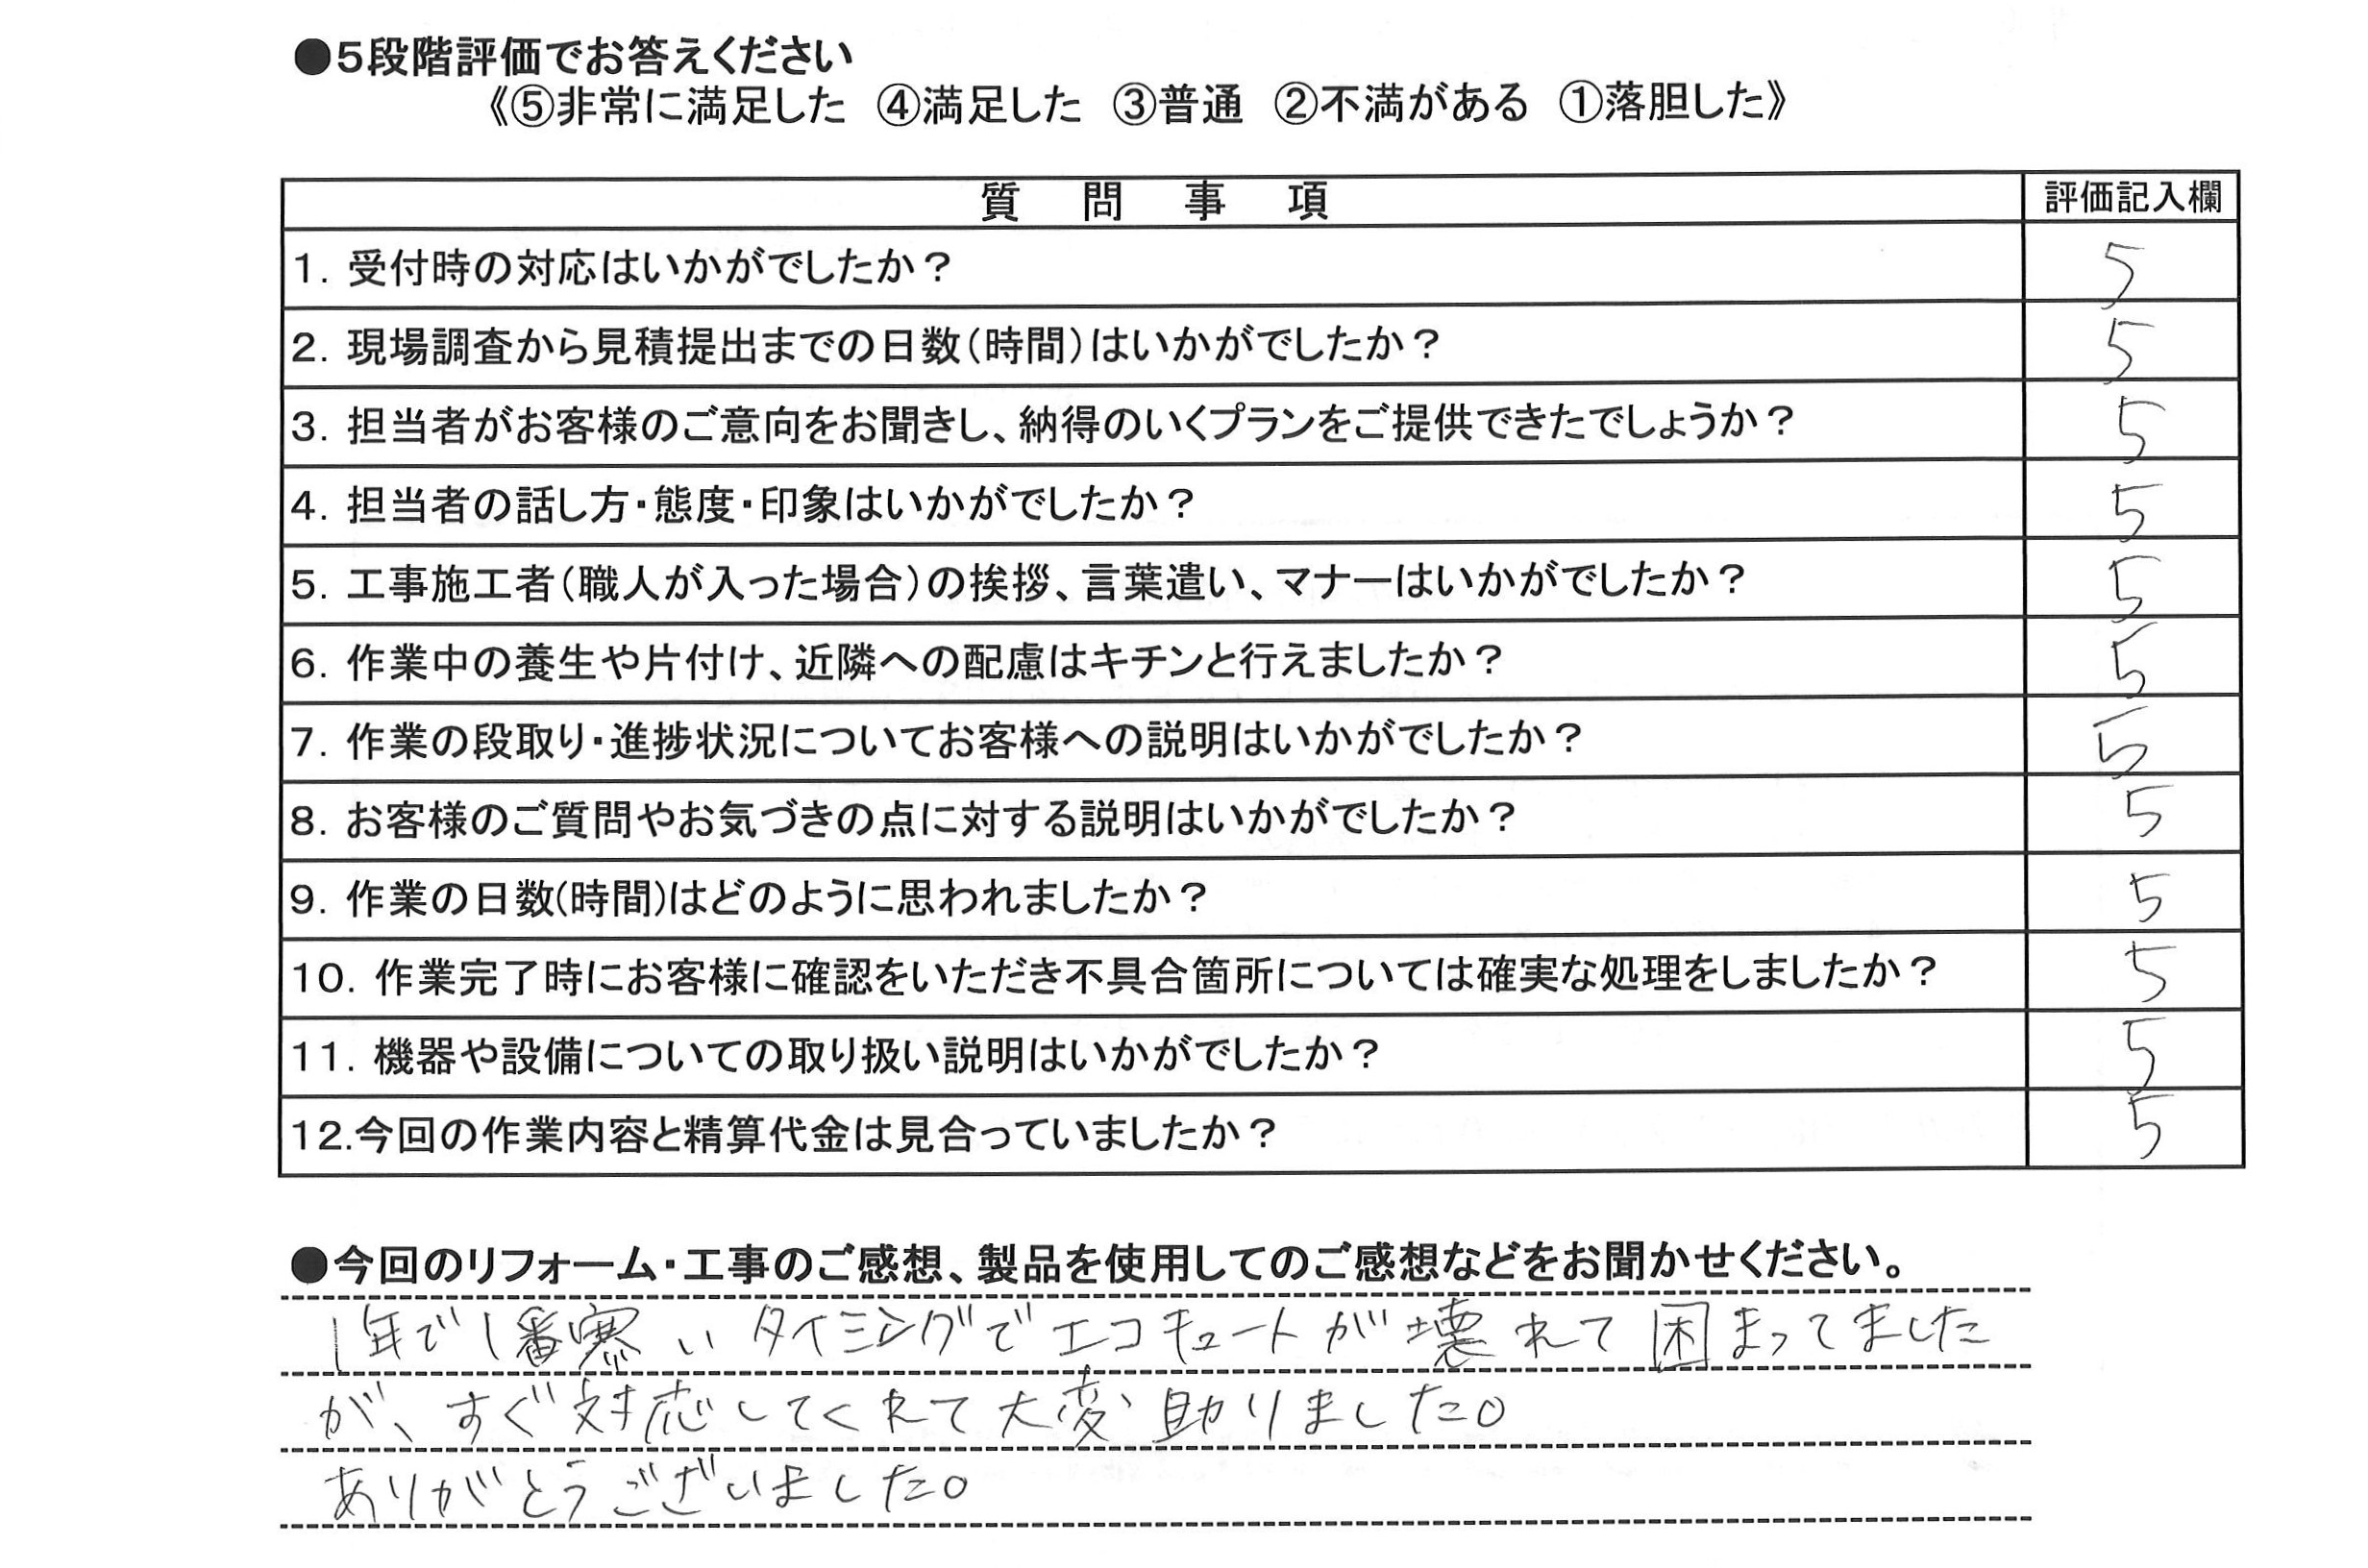 ●５段階評価でお答えください
《⑤非常に満足した ④満足した ③普通 ②不満がある ①落胆した》
質 問 事 項 評価記入欄
1. 受付時の対応はいかがでしたか？ 5
2. 現場調査から見積提出までの日数（時間）はいかがでしたか？ 5
3. 担当者がお客様のご意向をお聞きし、納得のいくプランをご提供できたでしょうか？ 5
4. 担当者の話し方・態度・印象はいかがでしたか？ 5
5. 工事施工者（職人が入った場合）の挨拶、言葉遣い、マナーはいかがでしたか？ 5
6. 作業中の養生や片付け、近隣への配慮はキチンと行えましたか？ 5
7. 作業の段取り・進捗状況についてお客様への説明はいかがでしたか？ 5
8. お客様のご質問やお気づきの点に対する説明はいかがでしたか？ 5
9. 作業の日数(時間)はどのように思われましたか？ 5
10. 作業完了時にお客様に確認をいただき不具合箇所については確実な処理をしましたか？ 5
11. 機器や設備についての取り扱い説明はいかがでしたか？ 5
12.今回の作業内容と精算代金は見合っていましたか？ 5
●今回のリフォーム・工事のご感想、製品を使用してのご感想などをお聞かせください。
1年で1番寒いタイミングでエコキュートが壊れて困まってました
が、すぐ対応してくれて大変助りました。
ありがとうございました。